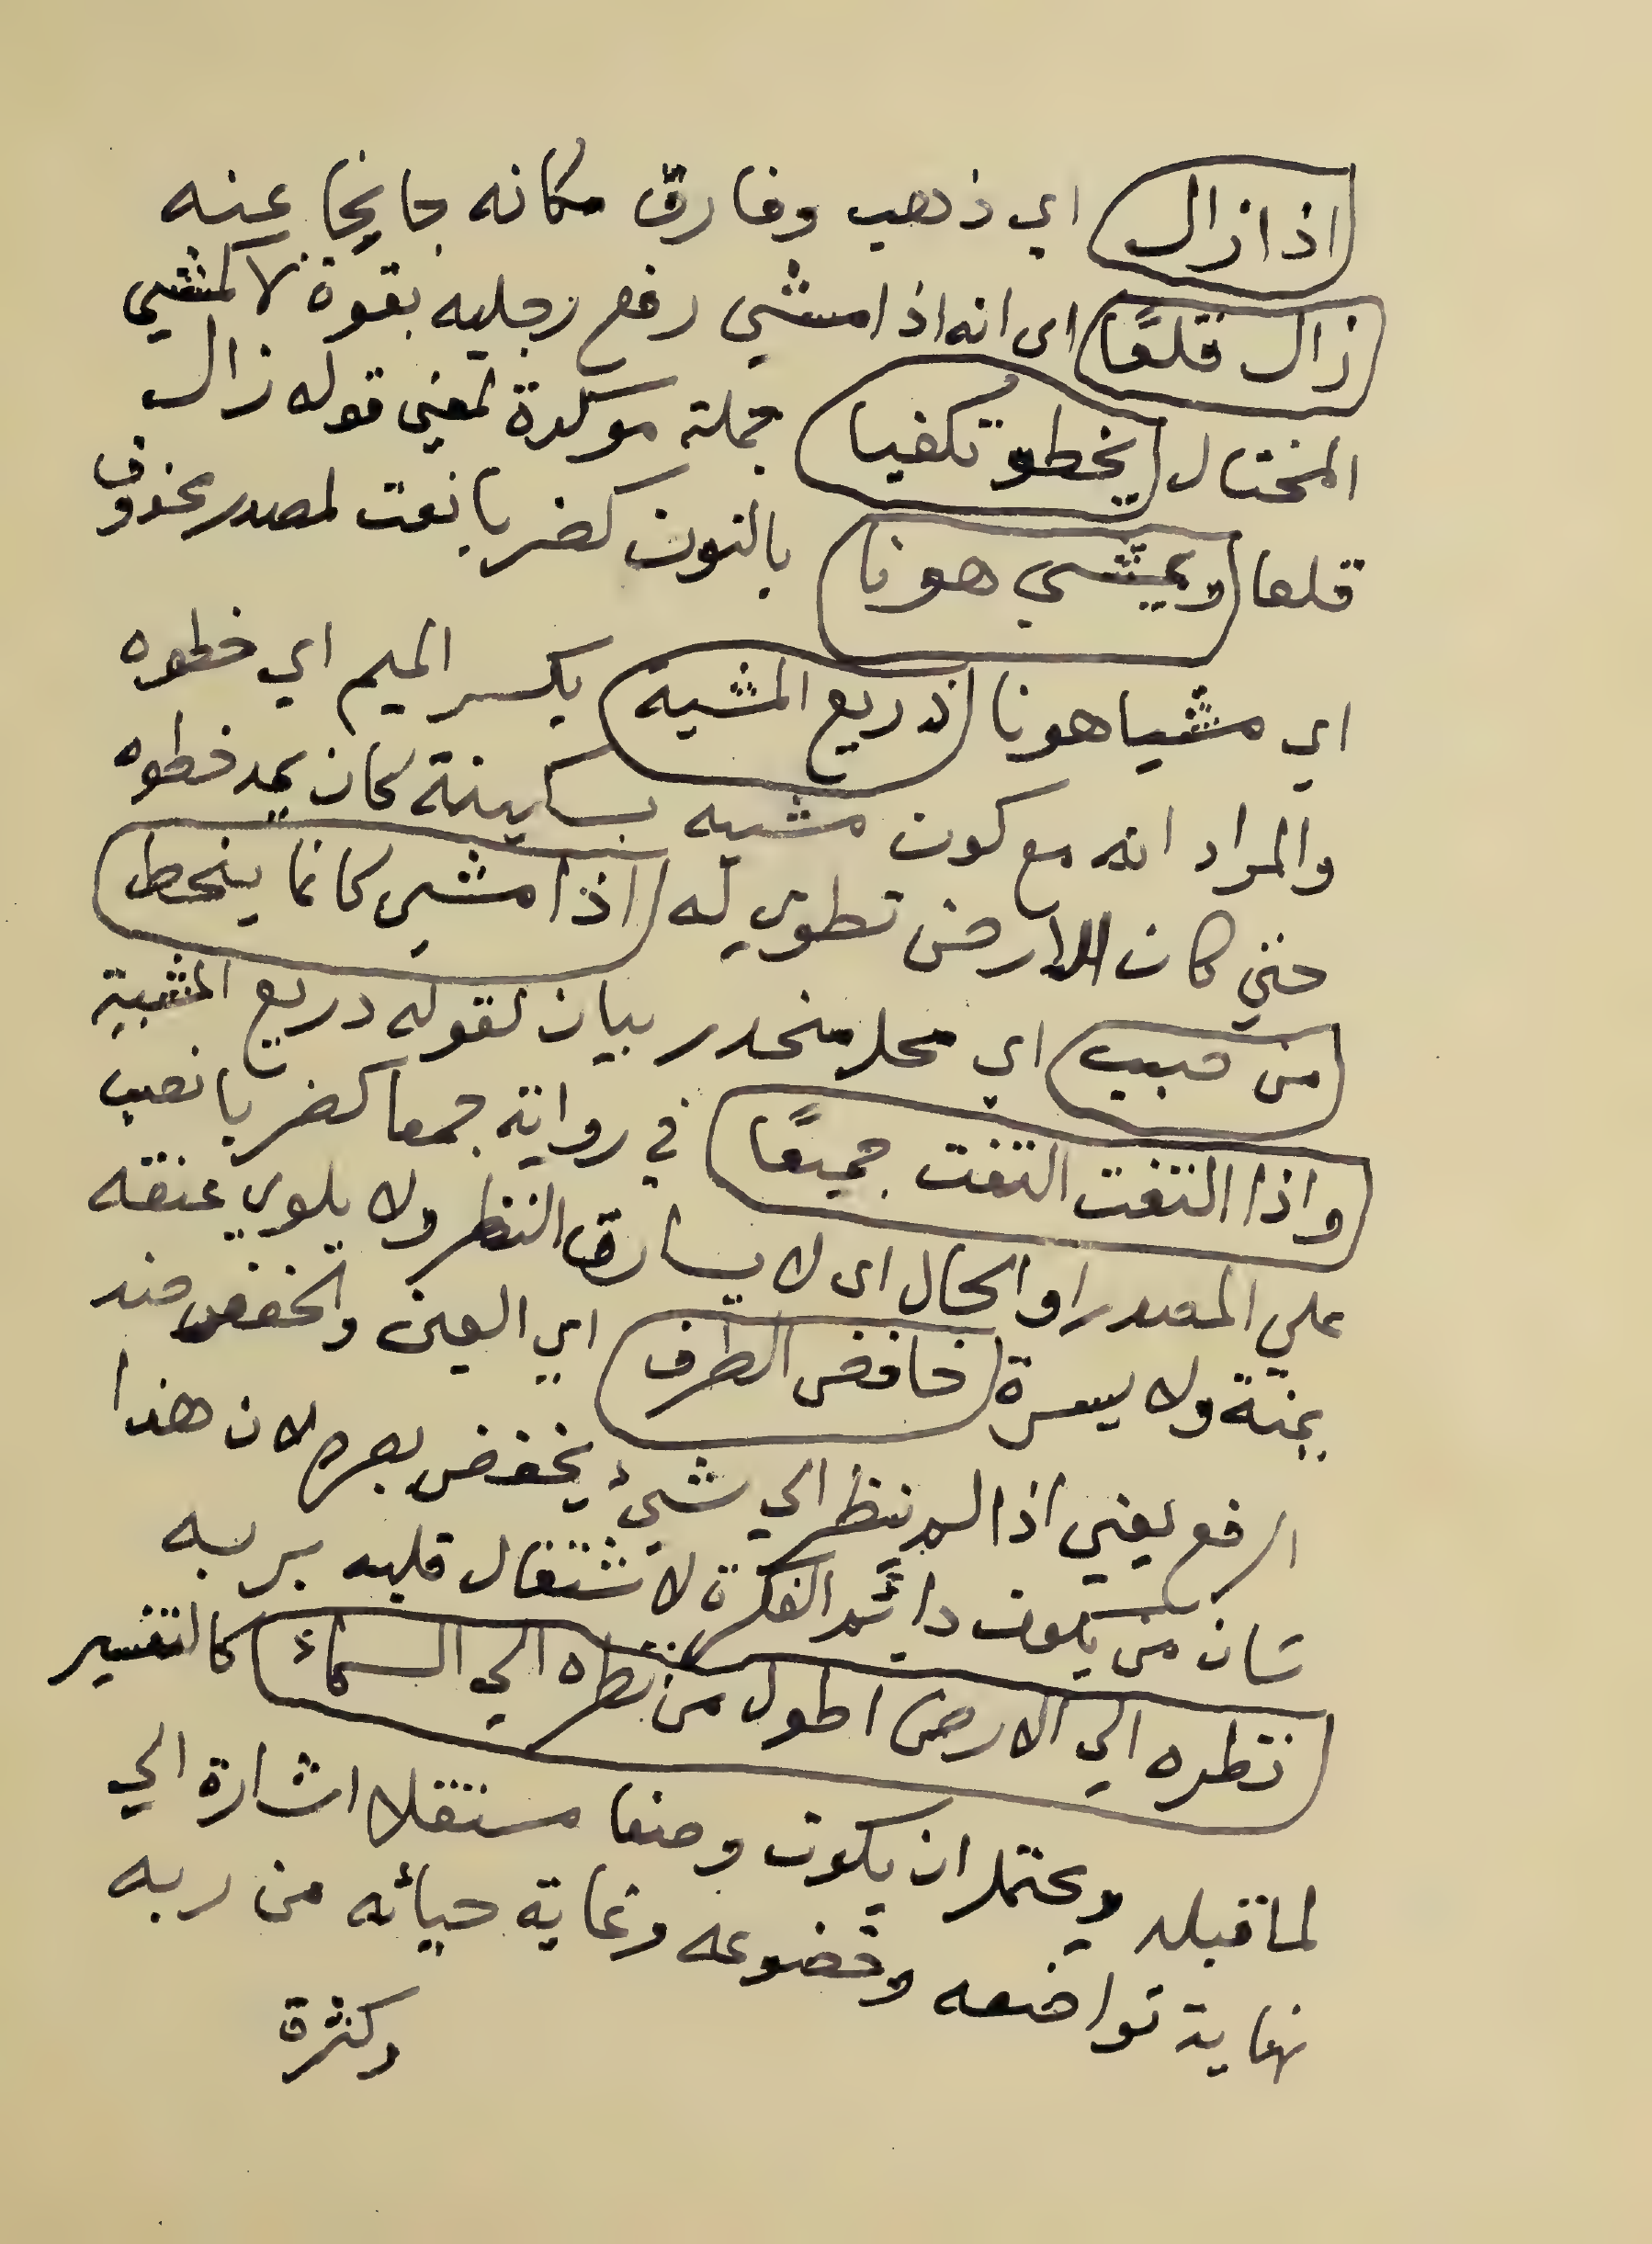 اذا زال اي ذهب وفارق مكانه جانحا عنه
زال قلعًا اى انه اذا مشي رفع رجليه بقوة لا كمشي
المختال يخطو تكفيا جملة موكدة لمعني قوله زال
قلعا ويمشي هونا بالنون كضربا نعت لمصدر محذوف
اي مشيا هونا ذريع المشية بكسر الميم اي خطوه
والمراد انه مع كون مشيه بسكينة كان يمد خطوه
حتي كان الارض تطوي له اذا مشي كانما ينحط
من صبب اي محل منحدر بيان لقوله دريع المشية
واذا التفت التفت جميعًا في رواية جمعا كضربا نصب
علي المصدر او الحال اى لا يسارق النظر ولا يلوي عنقه
يمنة ولا يسرة خافض الطرف اي العين والخفض ضد
الرفع يعني اذا لم ينظر الي شيء يخفض بصره لان هذا
شان من يكون دائم الفكرة لاشتغال قلبه بربه
نظره الي الارض اطول من نظره الي السماء كالتفسير
لما قبله ويحتمل ان يكون وصفا مستقلا اشارة الي
نهاية تواضعه وخضوعه وغاية حيائه من ربه
وكثرة